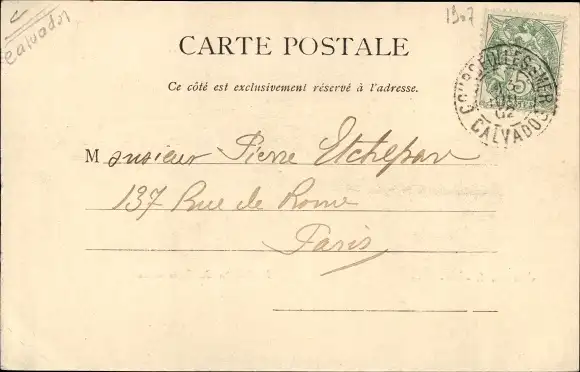 Calvados
1907
CARTE POSTALE
Ce côté est exclusivement réservé à l'adresse.
5
COURSEULLES-S-MER
02
CALVADOS
Monsieur Pierre Etchepar
137 Rue de Rome
Paris